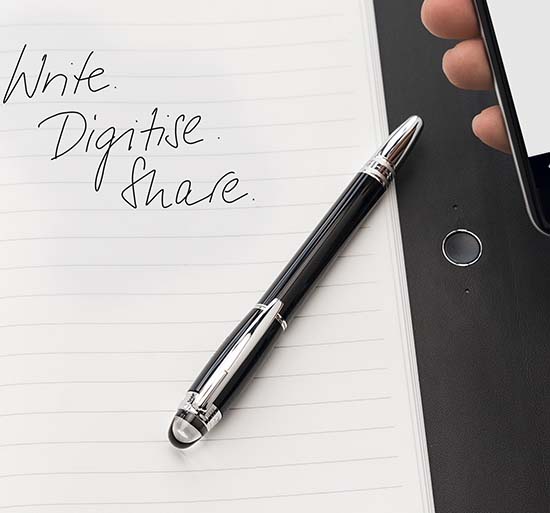 Write.
Digitise.
Share.